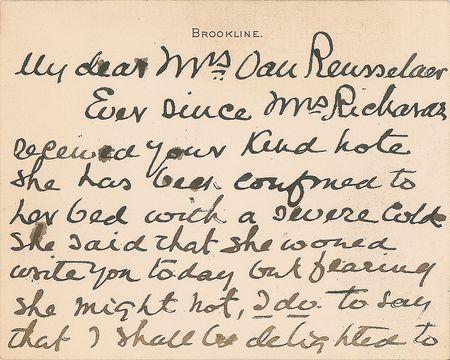 BROOKLINE.
My dear Mrs Van Rensselaer
Ever since Mrs Richards
received your kind note
she has been confined to
her bed with a severe cold
She said that she wooned
write you today but fearing
she might not, I do to say
that I shall be delighted to